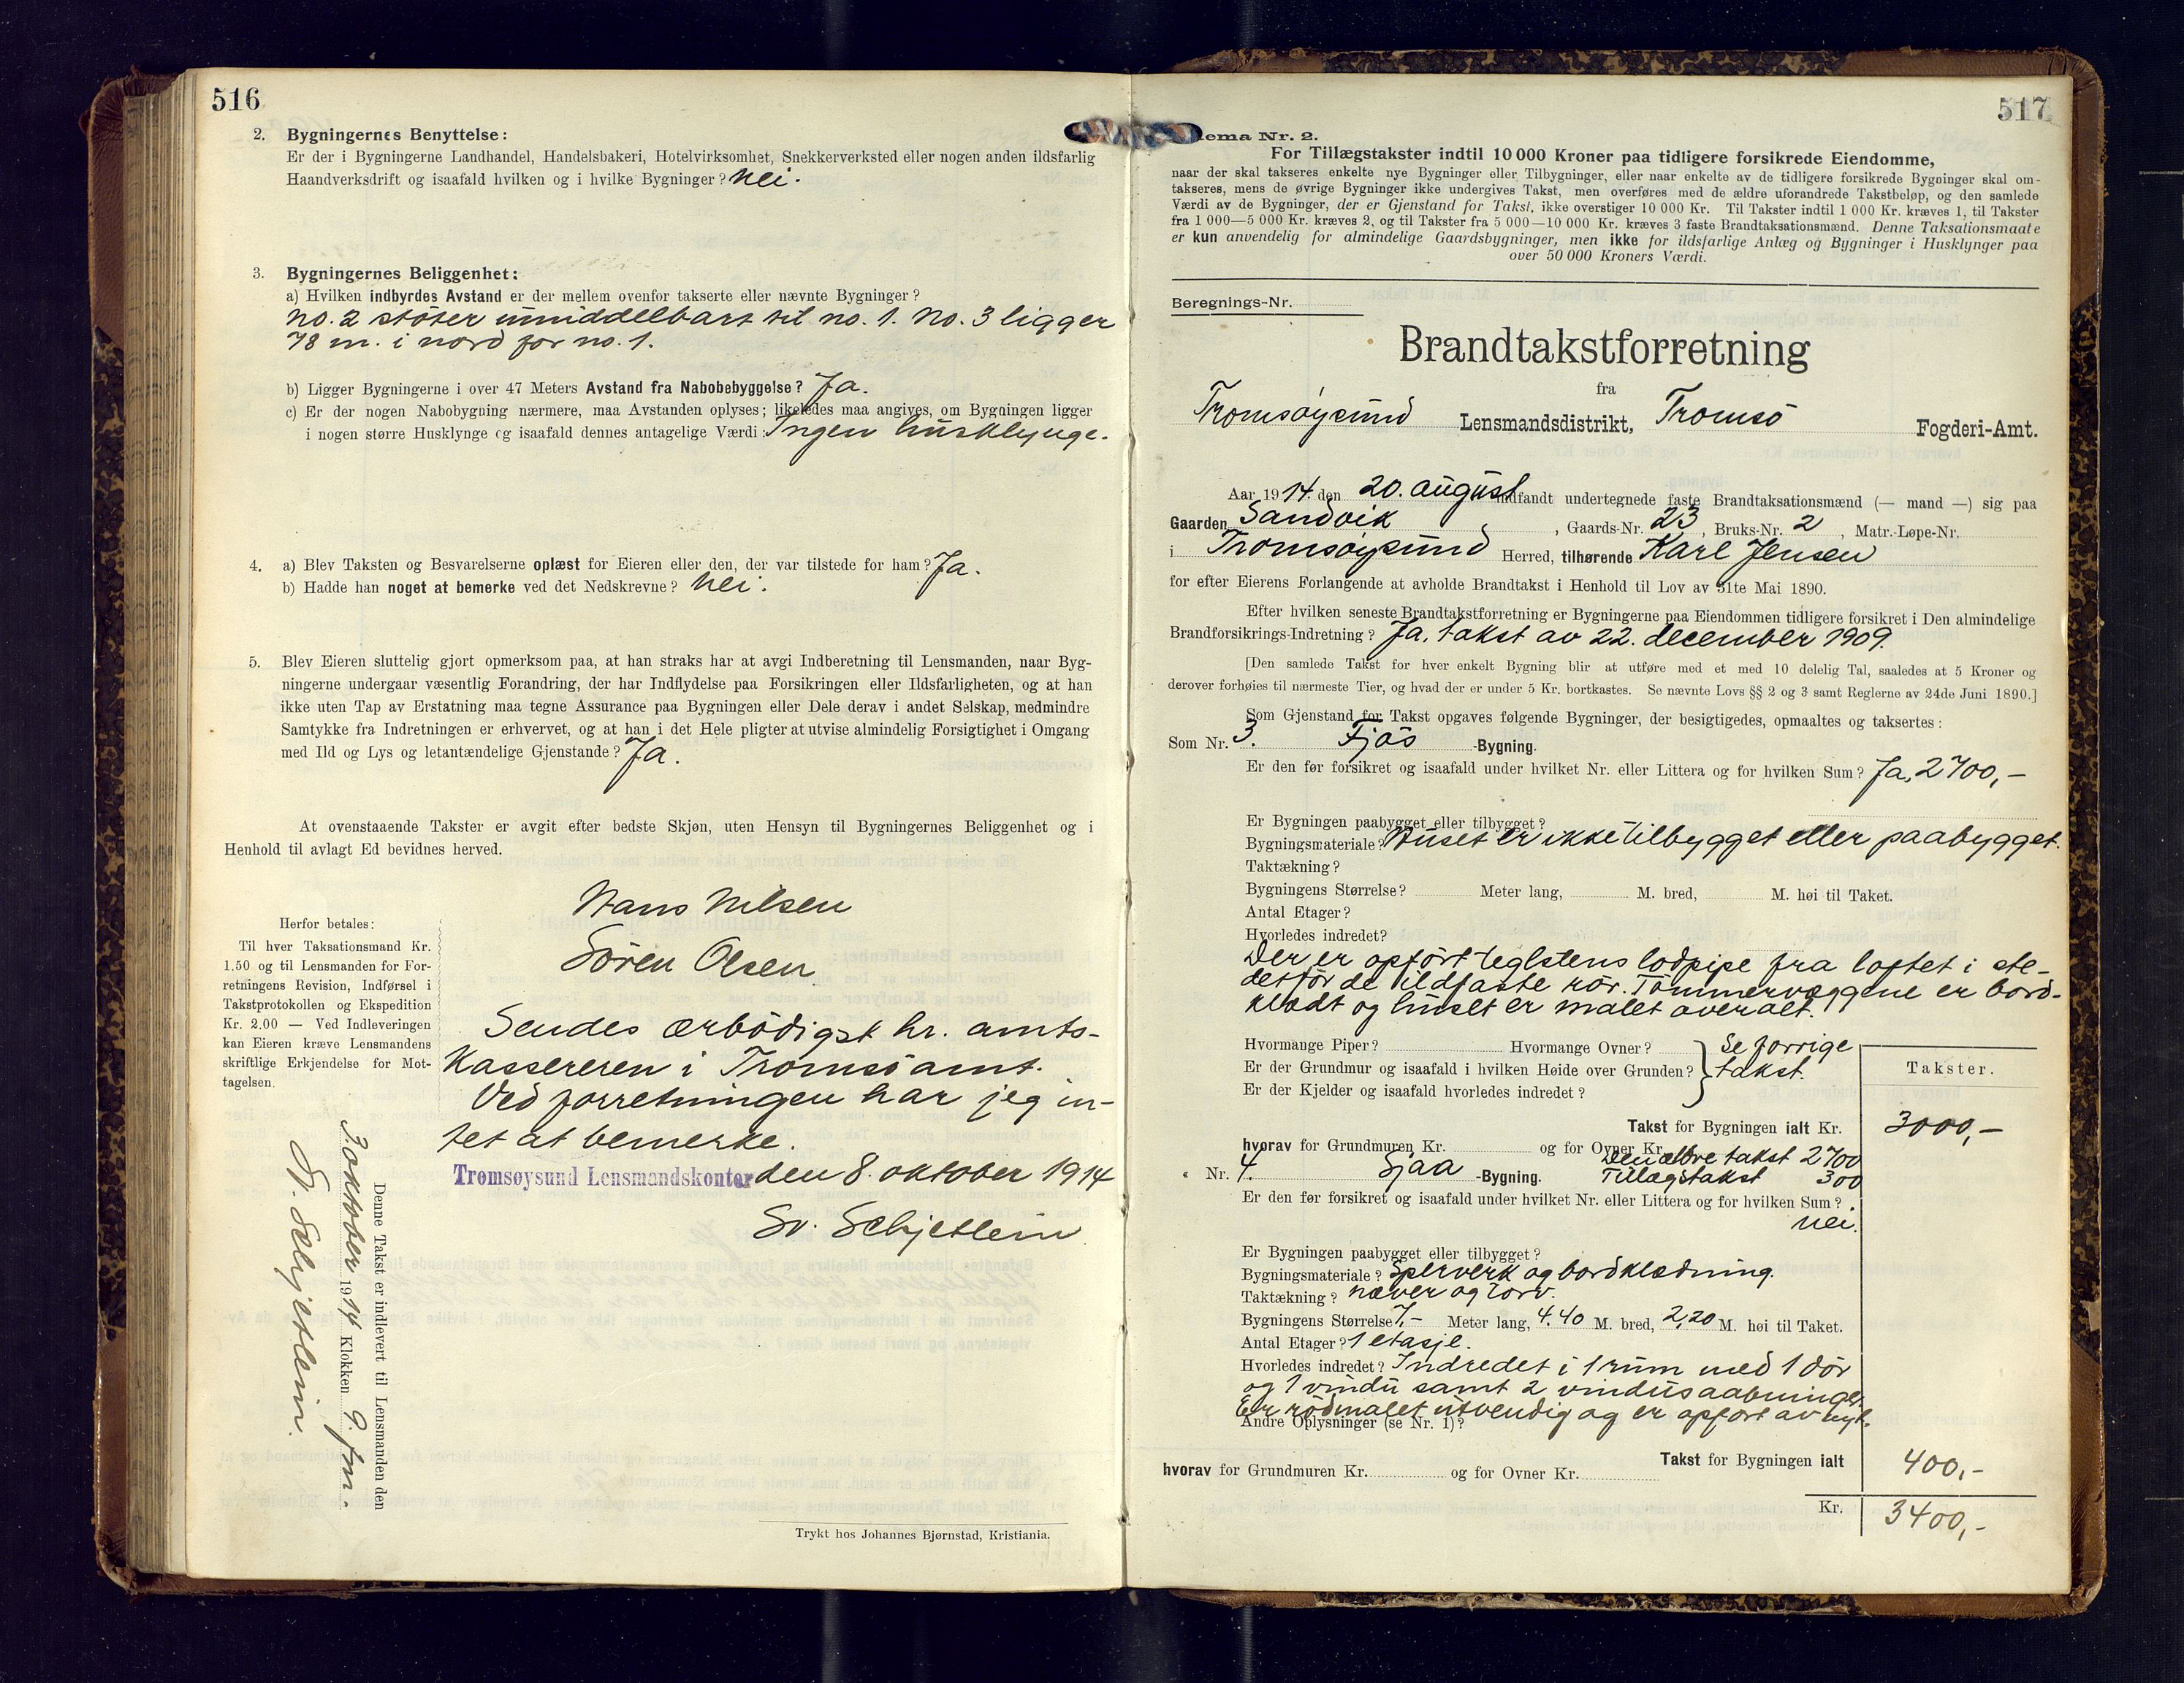 516
2. Bygningernes Benyttelse:
Er der i Bygningerne Landhandel, Handelsbakeri, Hotelvirksomhet, Snekkerverksted eller nogen anden ildsfarlig
Haandverksdrift og isaafald hvilken og i hvilke Bygninger? Nei.
3. Bygningernes Beliggenhet:
a) Hvilken indbyrdes Avstand er der mellem ovenfor takserte eller nævnte Bygninger?
No. 2 støter umiddelbart til no. 1. No. 3 ligger
78 m. i nord for no. 1.
b) Ligger Bygningerne i over 47 Meters Avstand fra Nabobebyggelse? Ja.
c) Er der nogen Nabobygning nærmere, maa Avstanden oplyses; likeledes maa angives, om Bygningen ligger
i nogen større Husklynge og isaafald dennes antagelige Værdi: Ingen husklynge.
4. a) Blev Taksten og Besvarelserne oplæst for Eieren eller den, der var tilstede for ham? Ja.
b) Hadde han noget at bemerke ved det Nedskrevne? Nei.
5. Blev Eieren sluttelig gjort opmerksom paa, at han straks har at avgi Indberetning til Lensmanden, naar Byg-
ningerne undergaar væsentlig Forandring, der har Indflydelse paa Forsikringen eller Ildsfarligheten, og at han
ikke uten Tap av Erstatning maa tegne Assurance paa Bygningen eller Dele derav i andet Selskap, medmindre
Samtykke fra Indretningen er erhvervet, og at han i det Hele pligter at utvise almindelig Forsigtighet i Omgang
med Ild og Lys og letantændelige Gjenstande? Ja.
At ovenstaaende Takster er avgit efter bedste Skjøn, uten Hensyn til Bygningernes Beliggenhet og i
Henhold til avlagt Ed bevidnes herved.
Hans Nilsen
Sören Olsen
Herfor betales:
Til hver Taksationsmand Kr.
1.50 og til Lensmanden for For-
retningens Revision, Indførsel i
Takstprotokollen og Ekspedition
Kr. 2.00 — Ved Indleveringen
kan Eieren kræve Lensmandens
skriftlige Erkjendelse for Mot-
tagelsen.
Sendes ærbödigst hr. amts-
kassereren i Tromsö amt.
Ved forretningen har jeg in-
tet at bemerke.
Tromsøysund Lensmandskontor den 8. oktober 1914
Sv. Schjetlein
Denne Takst er indlevert til Lensmanden den
3. oktober 1914 Klokken 9. fm.
S. Schjetlein.
Trykt hos Johannes Bjørnstad, Kristiania.
517
ema Nr. 2.
For Tillægstakster indtil 10 000 Kroner paa tidligere forsikrede Eiendomme,
naar der skal takseres enkelte nye Bygninger eller Tilbygninger, eller naar enkelte av de tidligere forsikrede Bygninger skal om-
takseres, mens de øvrige Bygninger ikke undergives Takst, men overføres med de ældre uforandrede Takstbeløp, og den samlede
Værdi av de Bygninger, der er Gjenstand for Takst, ikke overstiger 10 000 Kr. Til Takster indtil 1 000 Kr. kræves 1, til Takster
fra 1 000—5 000 Kr. kræves 2, og til Takster fra 5 000—10 000 Kr. kræves 3 faste Brandtaksationsmænd. Denne Taksationsmaate
er kun anvendelig for almindelige Gaardsbygninger, men ikke for ildsfarlige Anlæg og Bygninger i Husklynger paa
over 50 000 Kroners Værdi.
Beregnings-Nr.
Brandtakstforretning
fra
Tromsöysund Lensmandsdistrikt, Tromsö Fogderi-Amt.
Aar 1914. den 20. august indfandt undertegnede faste Brandtaksationsmænd (— mand —) sig paa
Gaarden Sandvik, Gaards-Nr. 23, Bruks-Nr. 2, Matr.-Løpe-Nr.
i Tromsöysund Herred, tilhørende Karl Jensen
for efter Eierens Forlangende at avholde Brandtakst i Henhold til Lov av 31te Mai 1890.
Efter hvilken seneste Brandtakstforretning er Bygningerne paa Eiendommen tidligere forsikret i Den almindelige
Brandforsikrings-Indretning? Ja, takst av 22. december 1909.
[Den samlede Takst for hver enkelt Bygning blir at utføre med et med 10 delelig Tal, saaledes at 5 Kroner og
derover forhøies til nærmeste Tier, og hvad der er under 5 Kr. bortkastes. Se nævnte Lovs §§ 2 og 3 samt Reglerne av 24de Juni 1890.]
Som Gjenstand for Takst opgaves følgende Bygninger, der besigtigedes, opmaaltes og taksertes:
Som Nr. 3. Fjös -Bygning.
Er den før forsikret og isaafald under hvilket Nr. eller Littera og for hvilken Sum? Ja, 2700,-
Er Bygningen paabygget eller tilbygget?
Bygningsmateriale? Huset er ikke tilbygget eller paabygget.
Taktækning?
Bygningens Størrelse? Meter lang, M. bred, M. høi til Taket.
Antal Etager?
Hvorledes indredet?
Der er opfört teglstens lodpipe fra loftet i ste-
detför de ildfaste rör. Tömmervæggene er bord-
klædt og huset er malet overalt.
Hvormange Piper? Hvormange Ovner? Se forrige
Er der Grundmur og isaafald i hvilken Høide over Grunden? takst.
Er der Kjelder og isaafald hvorledes indredet?
Takster.
Takst for Bygningen ialt Kr. 3000,-
hvorav for Grundmuren Kr. og for Ovner Kr. Den ældre takst 2700
Nr. 4. Sjaa -Bygning. Tillægstakst 300
Er den før forsikret og isaafald under hvilket Nr. eller Littera og for hvilken Sum?
Nei.
Er Bygningen paabygget eller tilbygget?
Bygningsmateriale? Sperverk og bordklædning.
Taktækning? Næver og torv.
Bygningens Størrelse 7,- Meter lang, 4.40 M. bred, 2,20 M. høi til Taket.
Antal Etager? 1 etasje.
Hvorledes indredet? Indredet i 1 rum med 1 dör
og 1 vindu samt 2 vindusaabninger.
Er rödmalet utvendig og er opfört av nyt.
Andre Oplysninger (se Nr. 1)?
Takst for Bygningen ialt 400,-
hvorav for Grundmuren Kr. og for Ovner Kr.
Kr. 3400,-